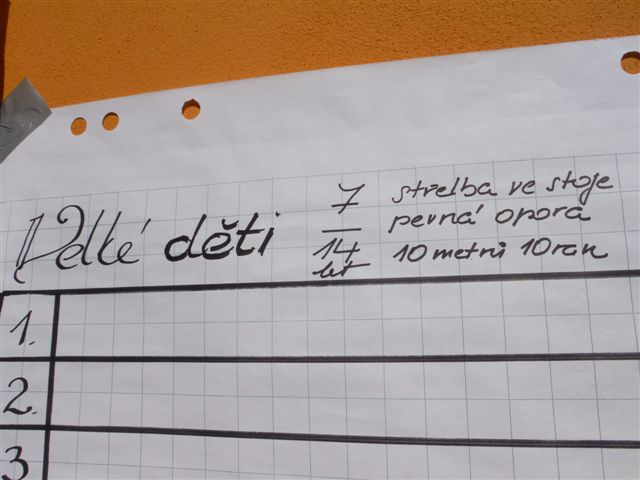 Velké děti
7
—
14
let
střelba ve stoje
pevná opora
10 metrů 10 ran
1.
2.
3